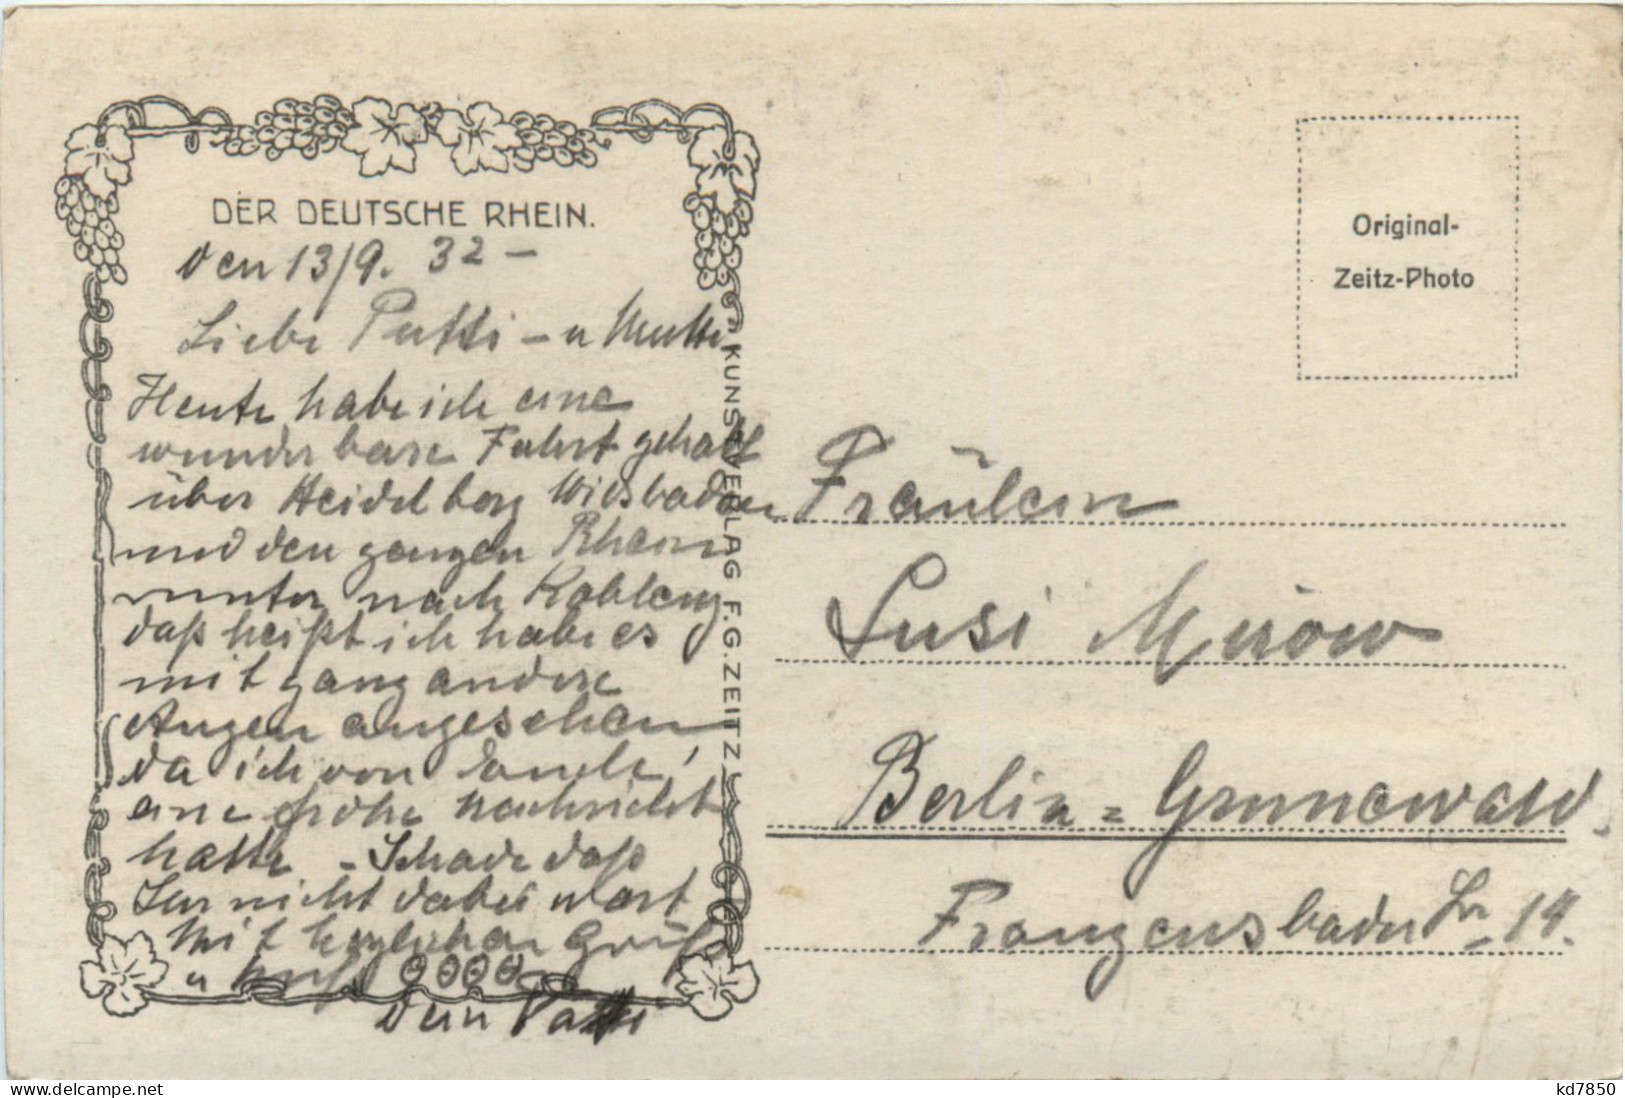 DER DEUTSCHE RHEIN.
den 13/9. 32 –
Liebe Putti – u Mutti
Heute habe ich eine
wunderbare Fahrt gehabt
über Heidelberg Wiesbaden
und den ganzen Rhein
runter nach Koblenz
daß heißt ich habe es
mit ganz andere
Augen angesehen
da ich von
eine frohe Nachricht
hatte – Schade daß
nicht dabei warst
Mit herzlichen Gruß
u Kuß
Dein Vatti
KUNSTVERLAG F.G.ZEITZ
Original-
Zeitz-Photo
Fräulein
Susi Mürow
Berlin = Grunewald.
Franzensbader Str 14.
delcampe.net
kd7850